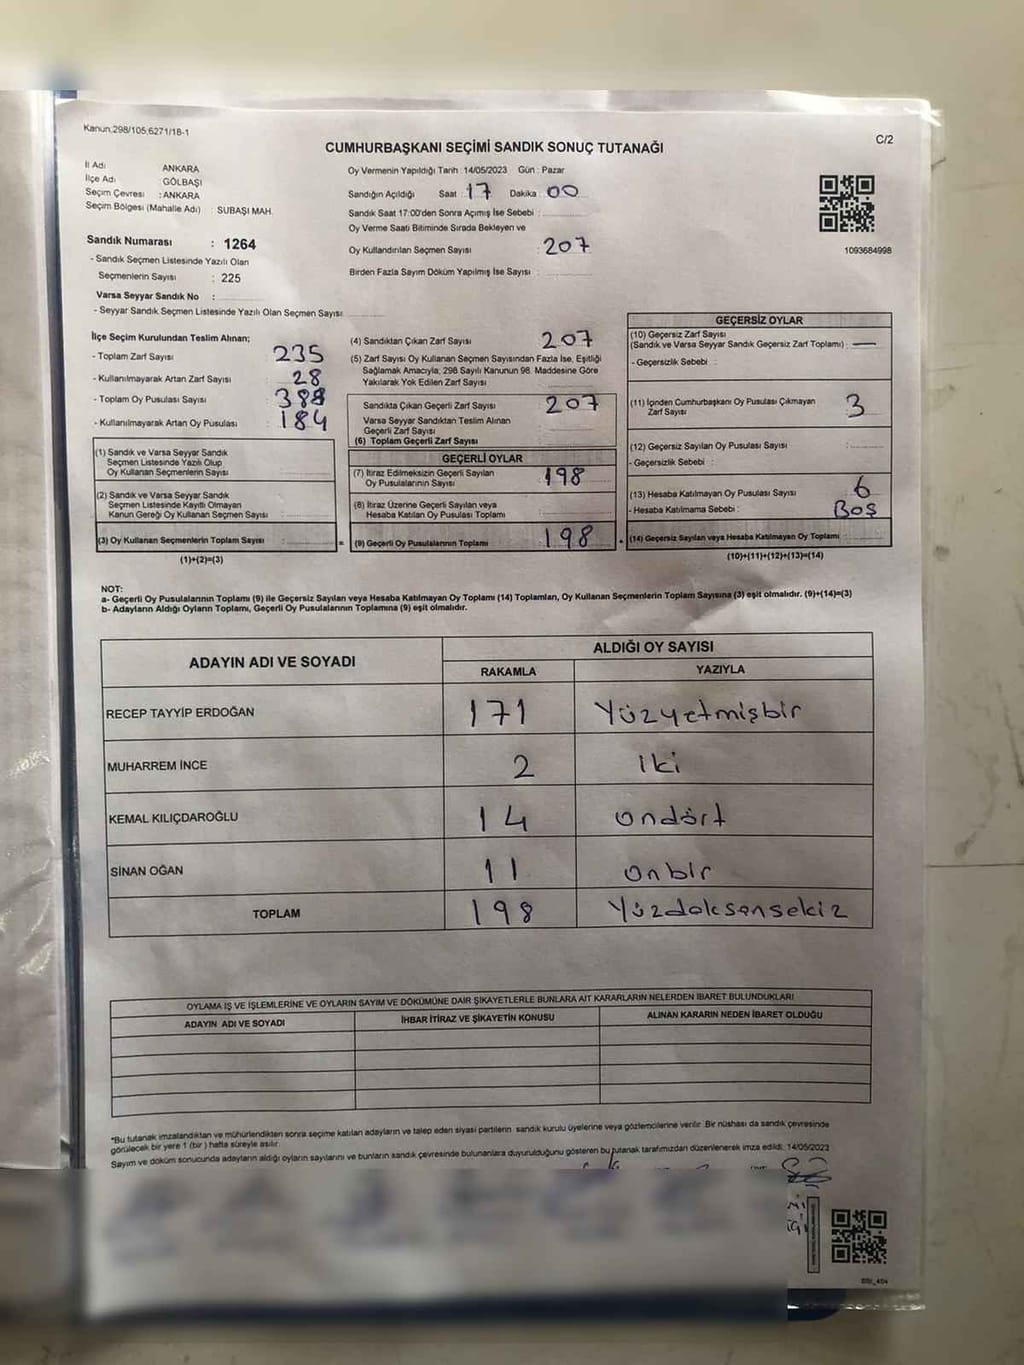 Kanun;298/105;6271/18-1
C/2
CUMHURBAŞKANI SEÇİMİ SANDIK SONUÇ TUTANAĞI
İl Adı ANKARA
İlçe Adı : GÖLBAŞI
Seçim Çevresi : ANKARA
Seçim Bölgesi (Mahalle Adı) : SUBAŞI MAH.
Sandık Numarası : 1264
- Sandık Seçmen Listesinde Yazılı Olan
Seçmenlerin Sayısı : 225
Varsa Seyyar Sandık No :
- Seyyar Sandık Seçmen Listesinde Yazılı Olan Seçmen Sayısı:
Oy Vermenin Yapıldığı Tarih : 14/05/2023 Gün : Pazar
Sandığın Açıldığı Saat : 17 Dakika : 00
Sandık Saat 17:00'den Sonra Açımış İse Sebebi :
Oy Verme Saati Bitiminde Sırada Bekleyen ve
Oy Kullandırılan Seçmen Sayısı : 207
Birden Fazla Sayım Döküm Yapılmış İse Sayısı :
1093684998
İlçe Seçim Kurulundan Teslim Alınan;
- Toplam Zarf Sayısı : 235
- Kullanılmayarak Artan Zarf Sayısı : 28
- Toplam Oy Pusulası Sayısı :
- Kullanılmayarak Artan Oy Pusulası : 184
(1) Sandık ve Varsa Seyyar Sandık
Seçmen Listesinde Yazılı Olup
Oy Kullanan Seçmenlerin Sayısı :
(2) Sandık ve Varsa Seyyar Sandık
Seçmen Listesinde Kayıtlı Olmayan
Kanun Gereği Oy Kullanan Seçmen Sayısı :
(3) Oy Kullanan Seçmenlerin Toplam Sayısı : =
(1)+(2)=(3)
(4) Sandıktan Çıkan Zarf Sayısı : 207
(5) Zarf Sayısı Oy Kullanan Seçmen Sayısından Fazla İse, Eşitliği
Sağlamak Amacıyla, 298 Sayılı Kanunun 98. Maddesine Göre
Yakılarak Yok Edilen Zarf Sayısı :
Sandıkta Çıkan Geçerli Zarf Sayısı : 207
Varsa Seyyar Sandıktan Teslim Alınan
Geçerli Zarf Sayısı :
(6) Toplam Geçerli Zarf Sayısı :
GEÇERLİ OYLAR
(7) İtiraz Edilmeksizin Geçerli Sayılan
Oy Pusulalarının Sayısı : 198
(8) İtiraz Üzerine Geçerli Sayılan veya
Hesaba Katılan Oy Pusulası Toplamı :
(9) Geçerli Oy Pusulalarının Toplamı : 198
GEÇERSİZ OYLAR
(10) Geçersiz Zarf Sayısı
(Sandık ve Varsa Seyyar Sandık Geçersiz Zarf Toplamı) : —
- Geçersizlik Sebebi :
(11) İçinden Cumhurbaşkanı Oy Pusulası Çıkmayan
Zarf Sayısı : 3
(12) Geçersiz Sayılan Oy Pusulası Sayısı :
- Geçersizlik Sebebi :
(13) Hesaba Katılmayan Oy Pusulası Sayısı : 6
- Hesaba Katılmama Sebebi : Boş
(14) Geçersiz Sayılan veya Hesaba Katılmayan Oy Toplamı :
(10)+(11)+(12)+(13)=(14)
NOT:
a- Geçerli Oy Pusulalarının Toplamı (9) ile Geçersiz Sayılan veya Hesaba Katılmayan Oy Toplamı (14) Toplamları, Oy Kullanan Seçmenlerin Toplam Sayısına (3) eşit olmalıdır. (9)+(14)=(3)
b- Adayların Aldığı Oyların Toplamı, Geçerli Oy Pusulalarının Toplamına (9) eşit olmalıdır.
ADAYIN ADI VE SOYADI ALDIĞI OY SAYISI
RAKAMLA YAZIYLA
RECEP TAYYİP ERDOĞAN 171 Yüzyetmişbir
MUHARREM İNCE 2 iki
KEMAL KILIÇDAROĞLU 14 ondört
SİNAN OĞAN 11 onbir
TOPLAM 198 Yüzdoksensekiz
OYLAMA İŞ VE İŞLEMLERİNE VE OYLARIN SAYIM VE DÖKÜMÜNE DAİR ŞİKAYETLERLE BUNLARA AİT KARARLARIN NELERDEN İBARET BULUNDUKLARI
ADAYIN ADI VE SOYADI İHBAR İTİRAZ VE ŞİKAYETİN KONUSU ALINAN KARARIN NEDEN İBARET OLDUĞU
*Bu tutanak imzalandıktan ve mühürlendikten sonra seçime katılan adayların ve talep eden siyasi partilerin sandık kurulu üyelerine veya gözlemcilerine verilir. Bir nüshası da sandık çevresinde
görülecek bir yere 1 (bir) hafta süreyle asılır.
Sayım ve döküm sonucunda adayların aldığı oyların sayılarını ve bunların sandık çevresinde bulunanlara duyurulduğunu gösteren bu tutanak tarafımızdan düzenlenerek imza edildi. 14/05/2023